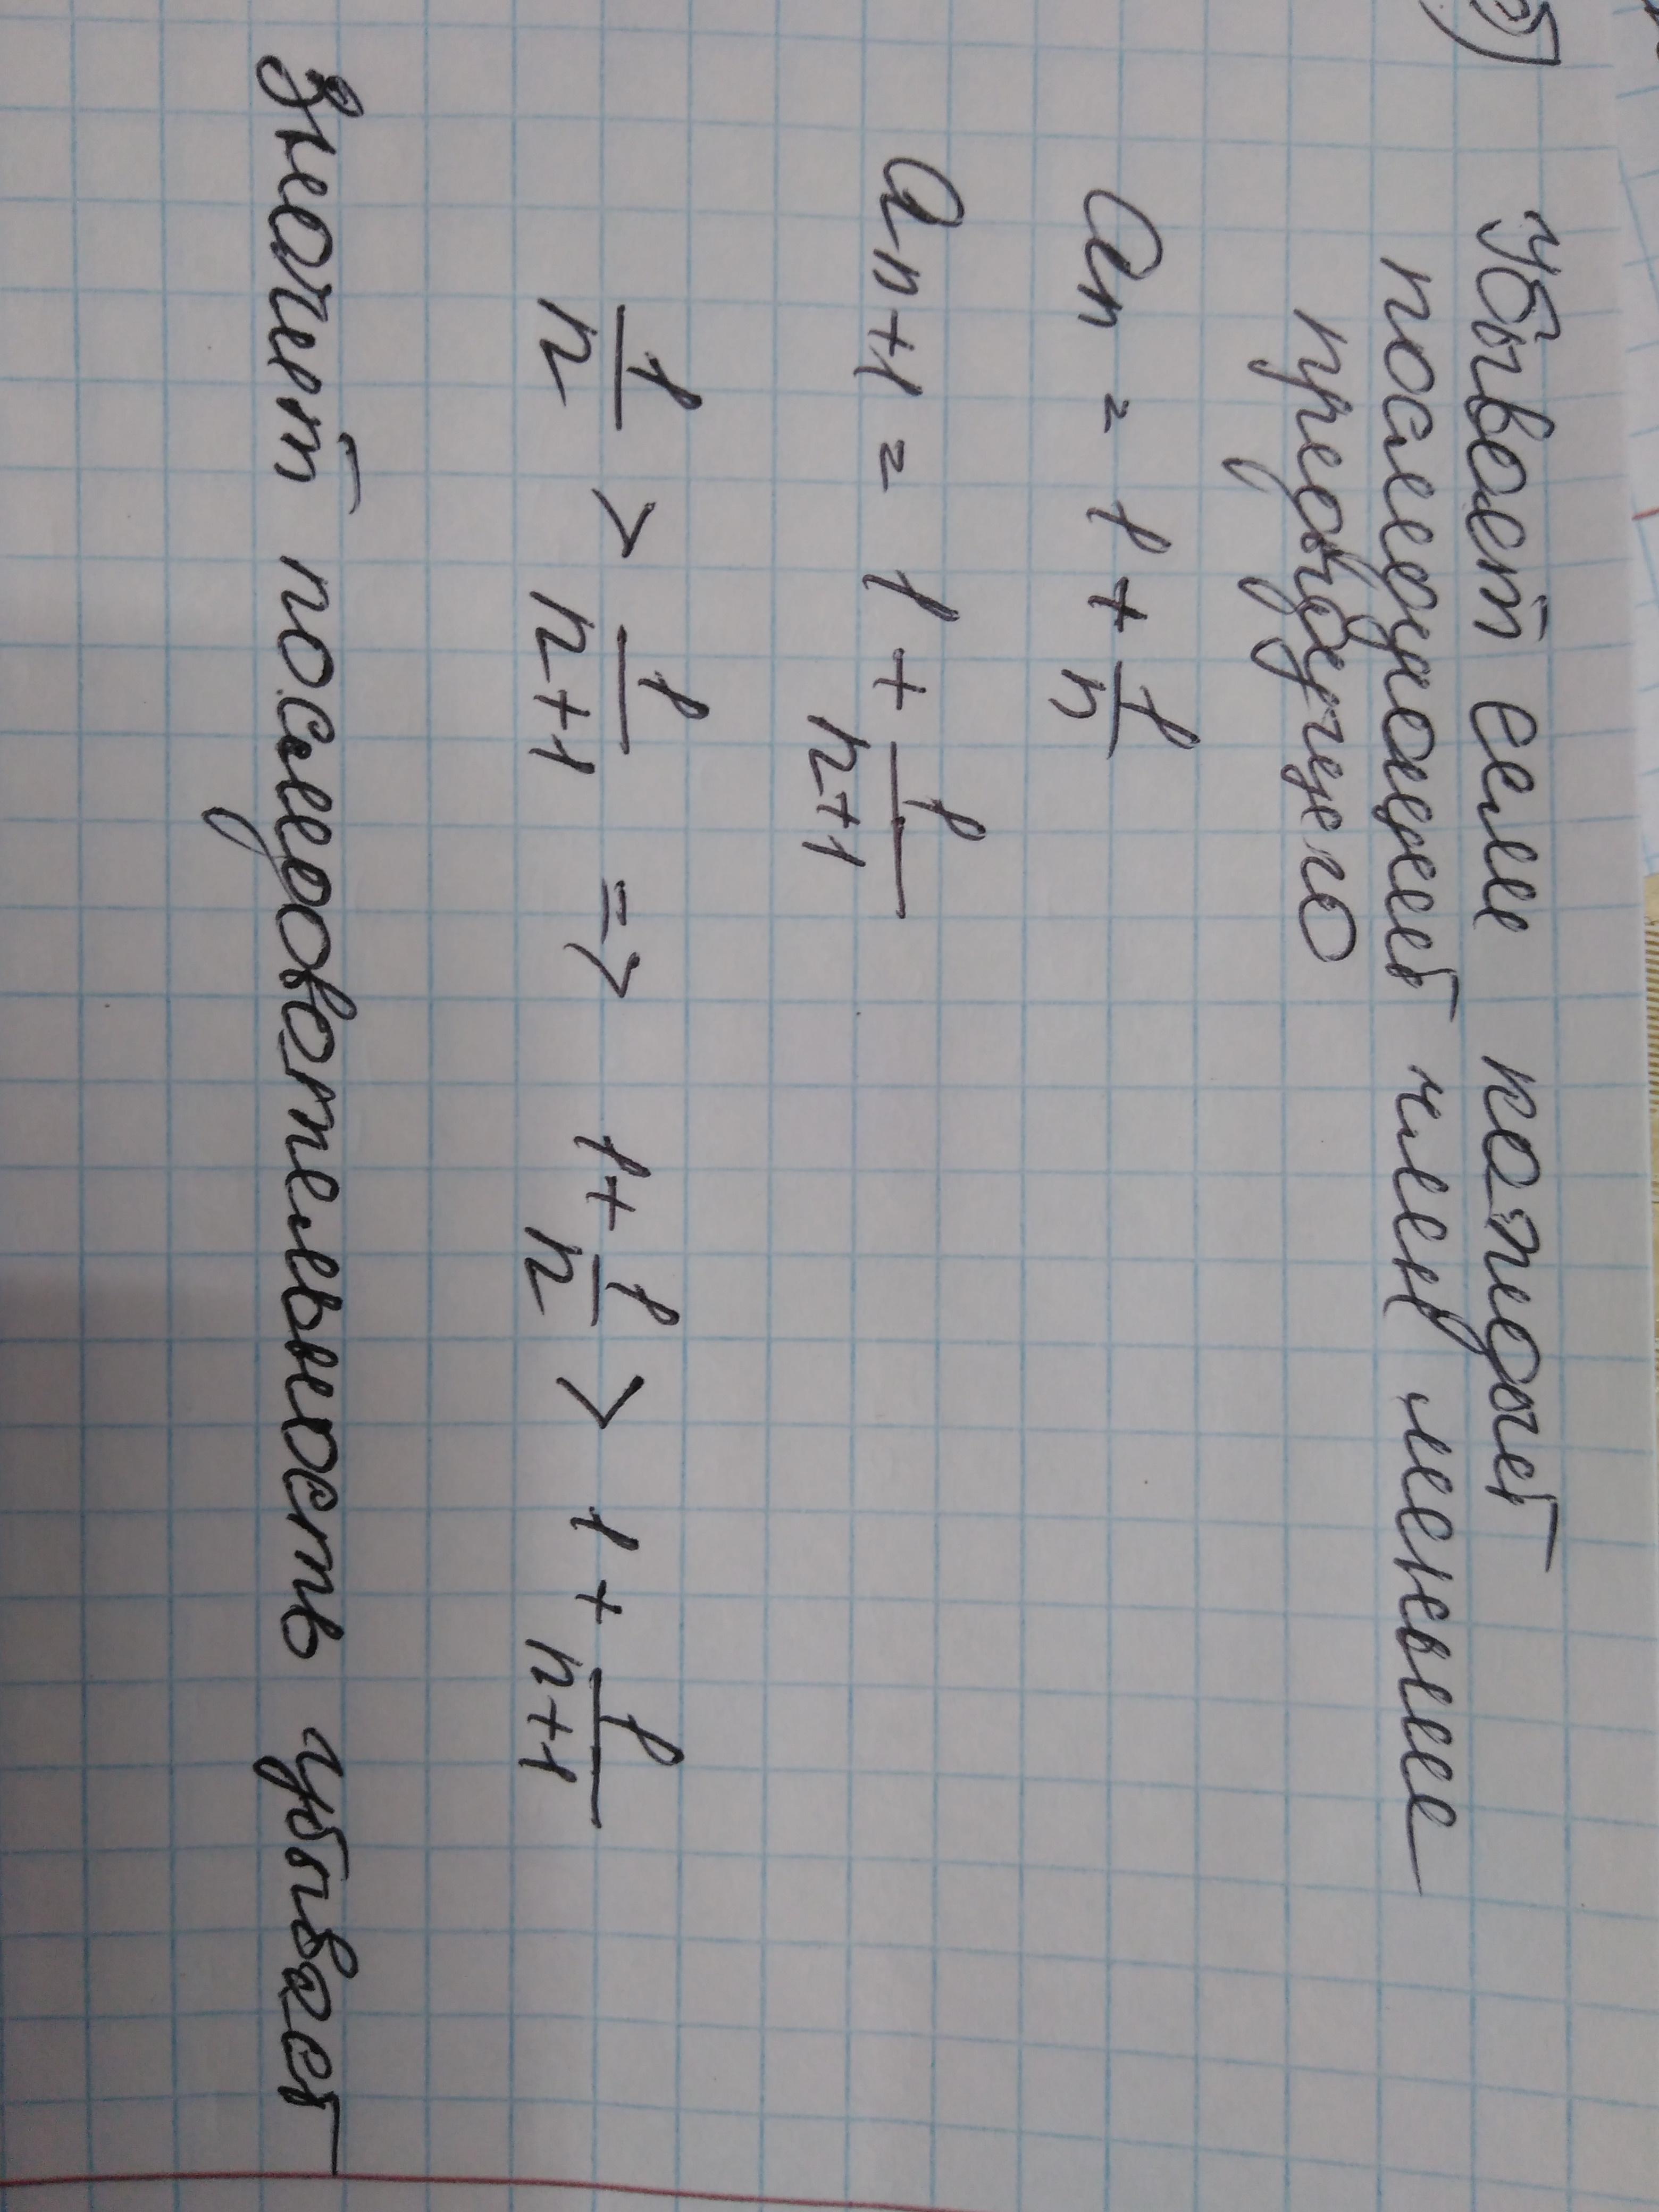 б) Убывает если каждый
последующий член меньше
предыдущего
an = 1 + 1/n
an+1 = 1 + 1/n+1
1/n > 1/n+1 => 1+1/n > 1 + 1/n+1
Значит последовательность убывает